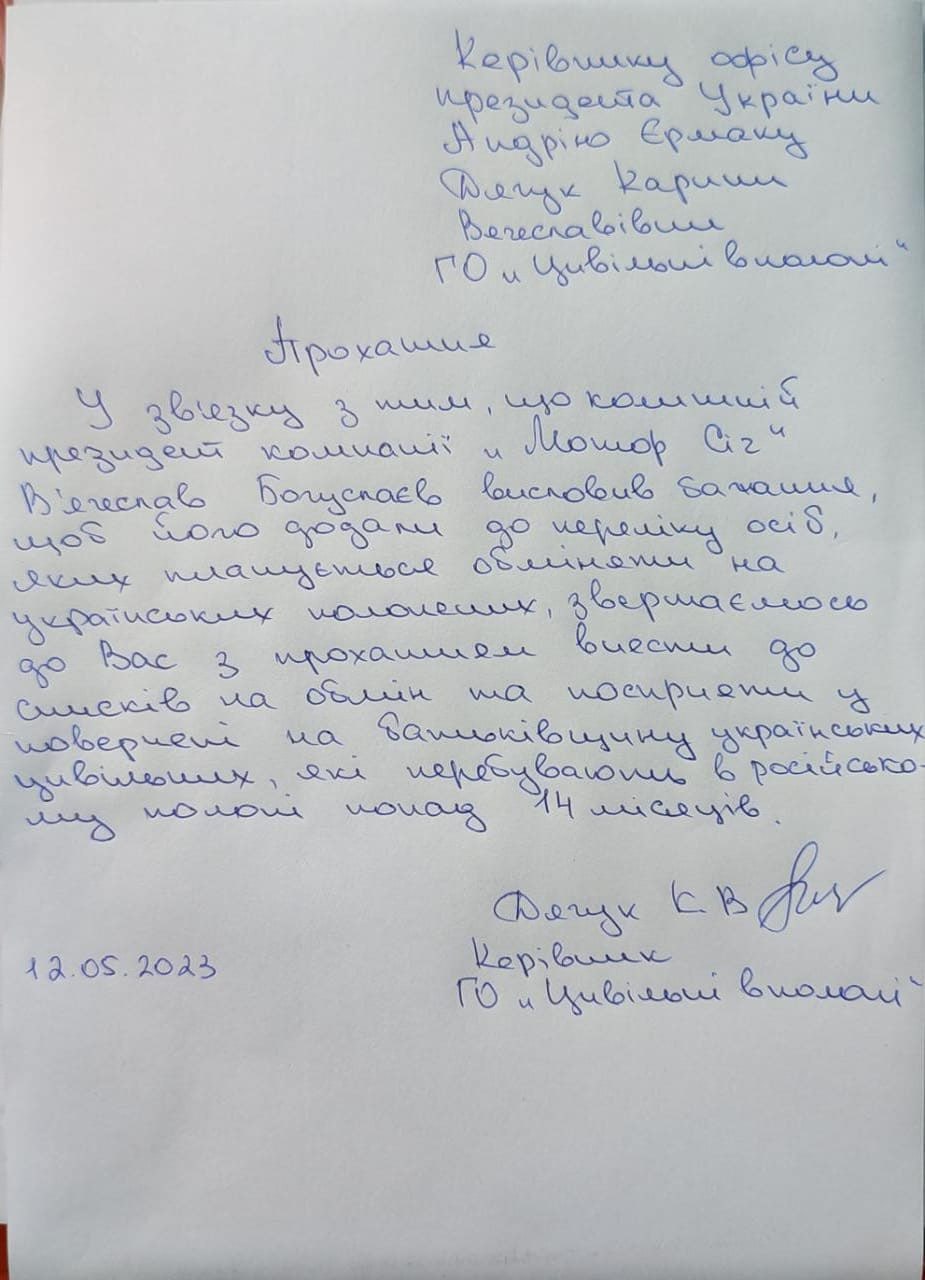 Керівнику офісу
президента України
Андрію Єрмаку
Дячук Карини
Вячеславівни
ГО „Цивільні в полоні"
Прохання
У зв'язку з тим, що колишній
президент компанії „Мотор Січ"
В'ячеслав Богуслаєв висловив бажання,
щоб його додали до переліку осіб,
яких планується обміняти на
українських полонених, звертаємось
до Вас з проханням внести до
списків на обмін та посприяти у
поверненні на батьківщину українських
цивільних, які перебувають в російсько-
му полоні понад 14 місяців.
Дячук К В
12.05.2023
Керівник
ГО „Цивільні в полоні"